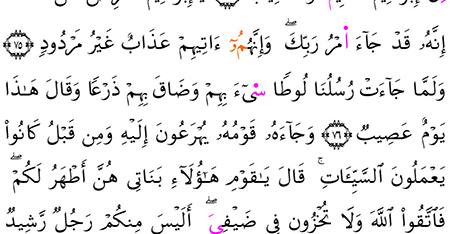 إِنَّهُۥ قَدْ جَآءَ ا۬مْرُ رَبِّكَۖ وَإِنَّهُمُۥٓ ءَاتِيهِمْ عَذَابٌ غَيْرُ مَرْدُودٖ ٧٥
وَلَمَّا جَآءَتْ رُسُلُنَا لُوطٗا سِيٓءَ بِهِمْ وَضَاقَ بِهِمْ ذَرْعٗا وَقَالَ هَٰذَا
يَوْمٌ عَصِيبٞ ٧٦ وَجَآءَهُۥ قَوْمُهُۥ يُهْرَعُونَ إِلَيْهِ وَمِن قَبْلُ كَانُوا۟
يَعْمَلُونَ ٱلسَّيِّـَٔاتِۚ قَالَ يَٰقَوْمِ هَٰٓؤُلَآءِ بَنَاتِي هُنَّ أَطْهَرُ لَكُمْۖ
فَٱتَّقُوا۟ ٱللَّهَ وَلَا تُخْزُونِ فِي ضَيْفِيَۖ أَلَيْسَ مِنكُمْ رَجُلٞ رَّشِيدٞ